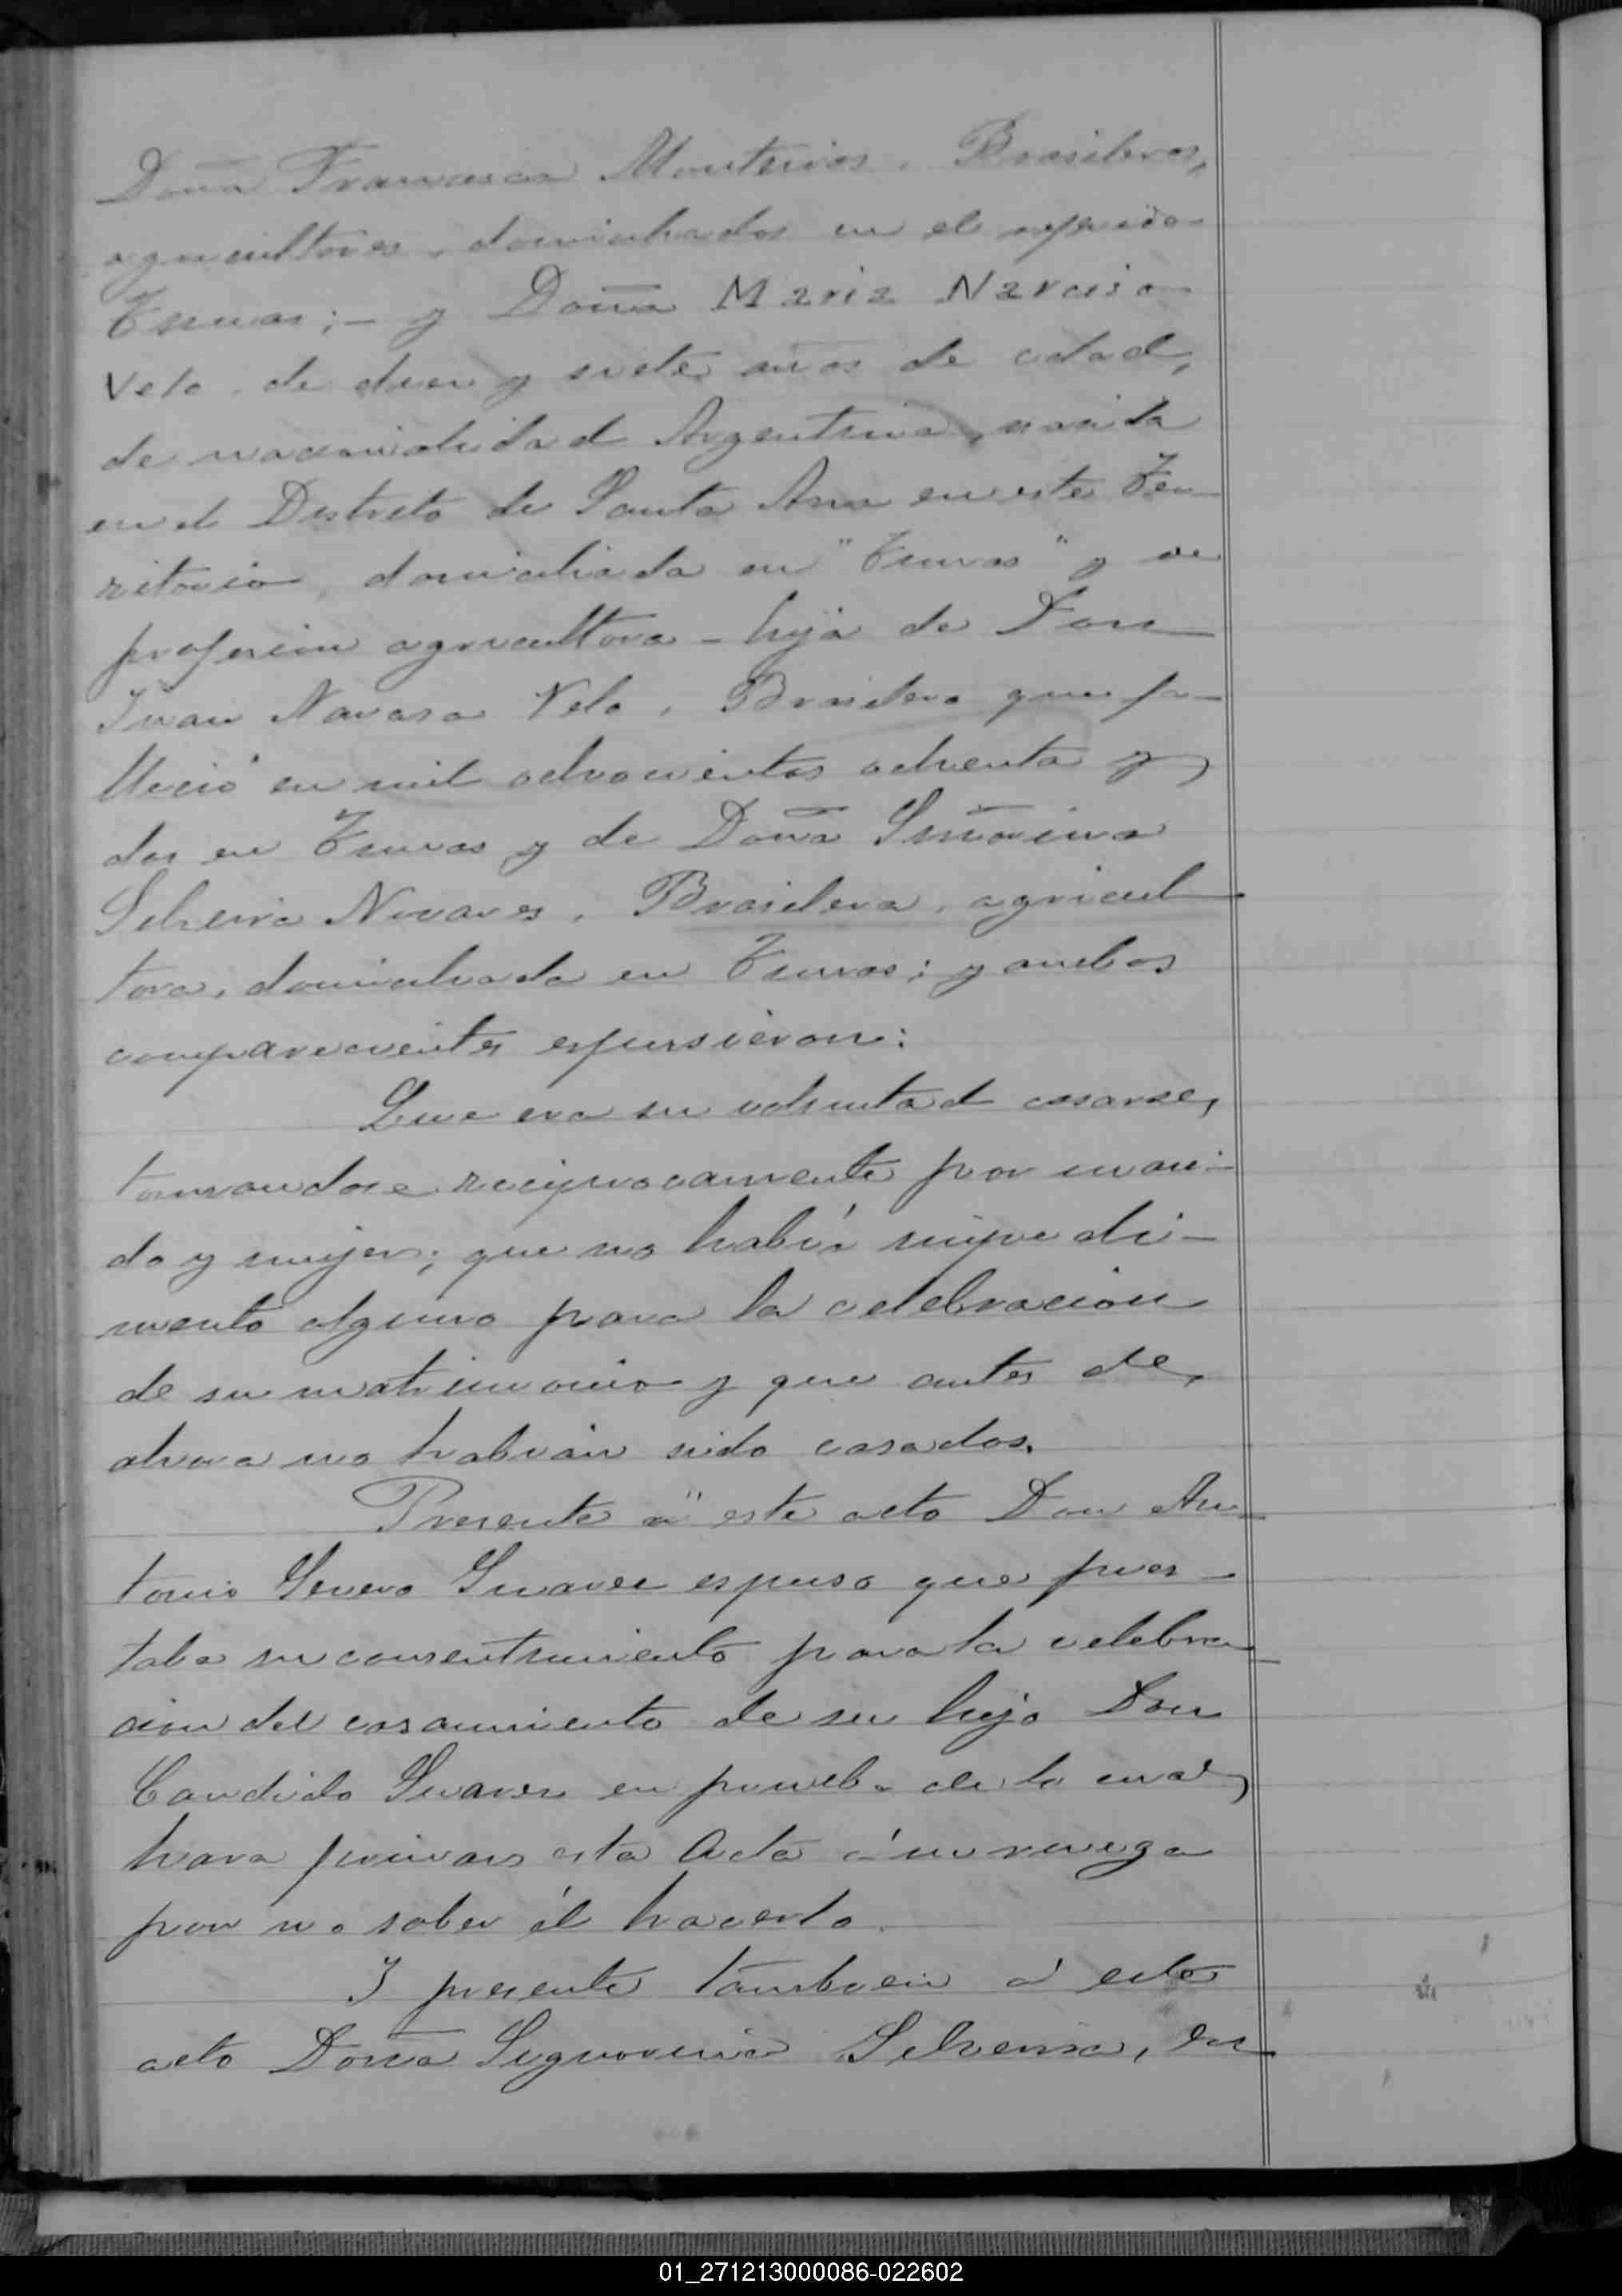 Doña Francisca Monteiros, Brasileros,
agricultores, domiciliados en el referido
Tunas;- y Doña Maria Narcisa
Velo, de diez y siete años de edad,
de nacionalidad Argentina, nacida
en el Destreto de Santa Ana en este Ter-
ritorio, domiciliada en "Tunas" y de
profesion agricultora - hija de Don
Juan Navaro Velo, Brasilero que fa-
lleció en mil ochocientos ochenta y
dos en Tunas y de Doña Siñorina
Silveira Novares, Brasilera, agricul
tora, domiciliada en Tunas; y ambos
comparecientes espusieron:
Que era su voluntad casarse,
tomandose reciprocamente por mari-
do y mujer; que no había impedi-
mento alguno para la celebracion
de su matrimonio y que antes de
ahora no habian sido casados.
Presente á este acto Don An-
tonio Severo Suarez espuso que pres-
taba su consentimiento para la celebra
cion del casamiento de su hijo Don
Candido Suares en prueba de lo cual
hara firmar esta Acta á su ruego
por no saber él hacerlo.
I presente tambien á este
acto Doña Signorinia Silveira, es